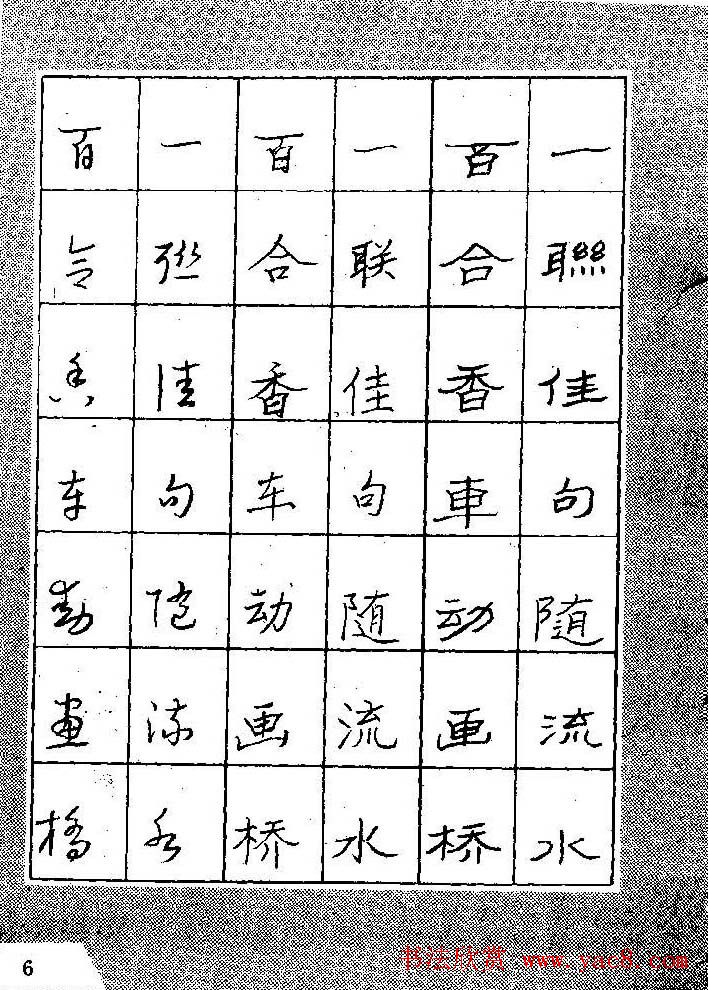 一聯佳句随流水
百合香車动画桥
一联佳句随流水
百合香车动画桥
一聯佳句随流水
百合香车動畫橋
6
书法欣赏 www.yac8.com